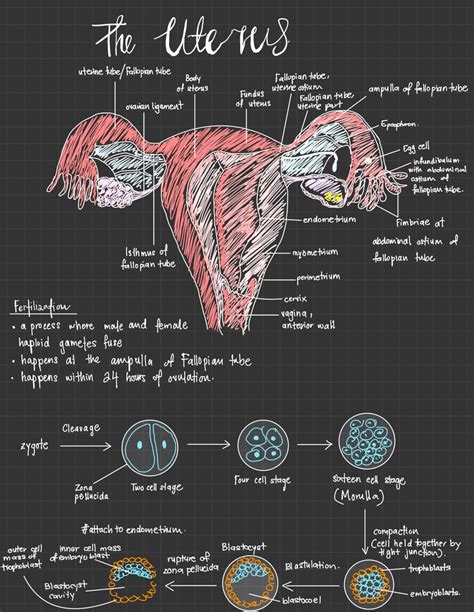 The Uterus
uterine tube/Fallopian tube
ovarian ligament
Body
of uterus
Fundus
of uterus
Fallopian tube,
uterine ostium
Fallopian tube,
uterine part
ampulla of fallopian tube
Epoophoron
Egg cell
infundibulum
with abdominal
ostium of
fallopian tube.
Fimbriae at
abdominal ostium of
fallopian tube
endometrium
myometrium
perimetrium
cervix
vagina,
anterior wall
Isthmus of
fallopian tube
Fertilization
• a process where male and female
haploid gametes fuse
• happens at the ampulla of Fallopian tube
• happens within 24 hours of ovulation.
zygote
Cleavage
Zona
pellucida
Two cell stage
Four cell stage
Sixteen cell stage
(Morulla)
compaction
(cell held together by
tight junction).
trophoblasts
embryoblasts
Blastulation.
Blastocyst
blastocoel
rupture of
zona pellucida
#attach to endometrium.
inner cell mass
of embryoblast
outer cell
mass of
trophoblast
Blastocyst
cavity